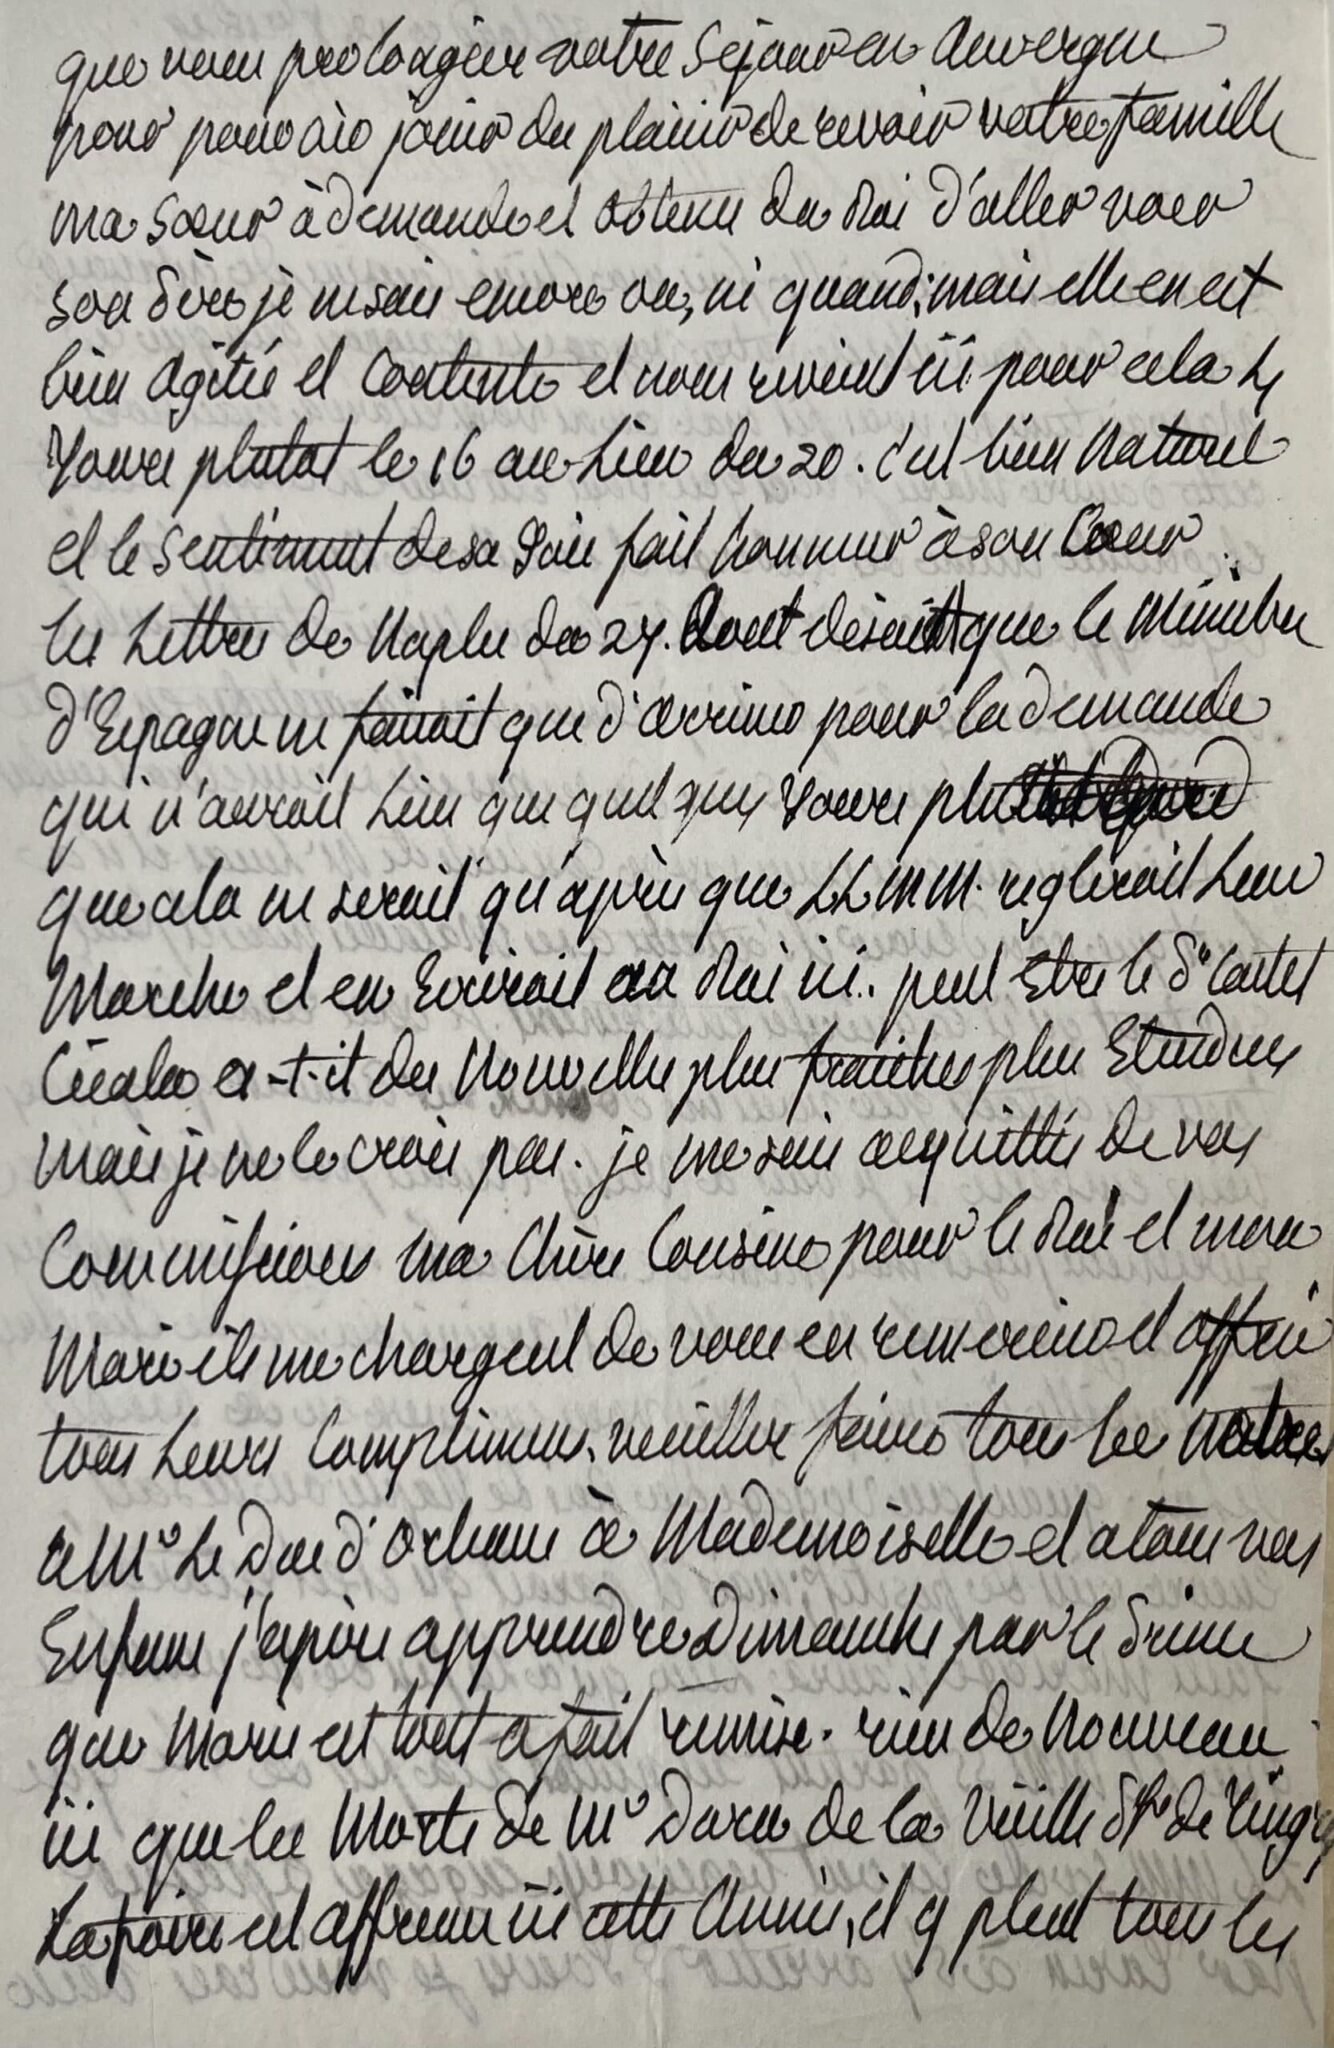 que vous prolongiez votre Séjour en Auvergne
pour pouvoir jouir du plaisir de revoir votre famille
ma Sœur à demandé et obtenu du Roi d'aller voir
son Père je ne sais encore ou, ni quand; mais elle en est
bien agitée et Contente et nous revient ici pour cela 4
Jours plutot le 16 au Lieu du 20. c'est bien Naturel
et le Sentiment de sa Joie fait honneur à son Cœur
les Lettres de Naples du 27. Aout disait que le Ministre
d'Espagne ne faisait que d'arriver pour la demande
qui n'aurait Lieu que quelques Jours plus
que cela ne serait qu'après que LL MM. regleroit Leur
Marche et en Ecriroit au Roi ici. peut Etre le Pce Castel
Cicala a-t-il des Nouvelles plus fraiches plus Etendues
mais je ne le crois pas. je me suis acquittée de vos
Commissions ma Chère Cousine pour le Roi et mon
Mari ils me chargent de vous en remercier et offrir
tous Leurs Complimens. veuillez faire tous les notres
a Mr Le Duc d'Orleans à Mademoiselle et a tous vos
Enfans j'espère apprendre Dimanche par le Prince
que Marie est tout a fait remise. rien de Nouveau
ici que les Morts de Mr Daru de la Vieille Psse de Tingry
La foire est affreuse ici cette Année, il y pleut tous les